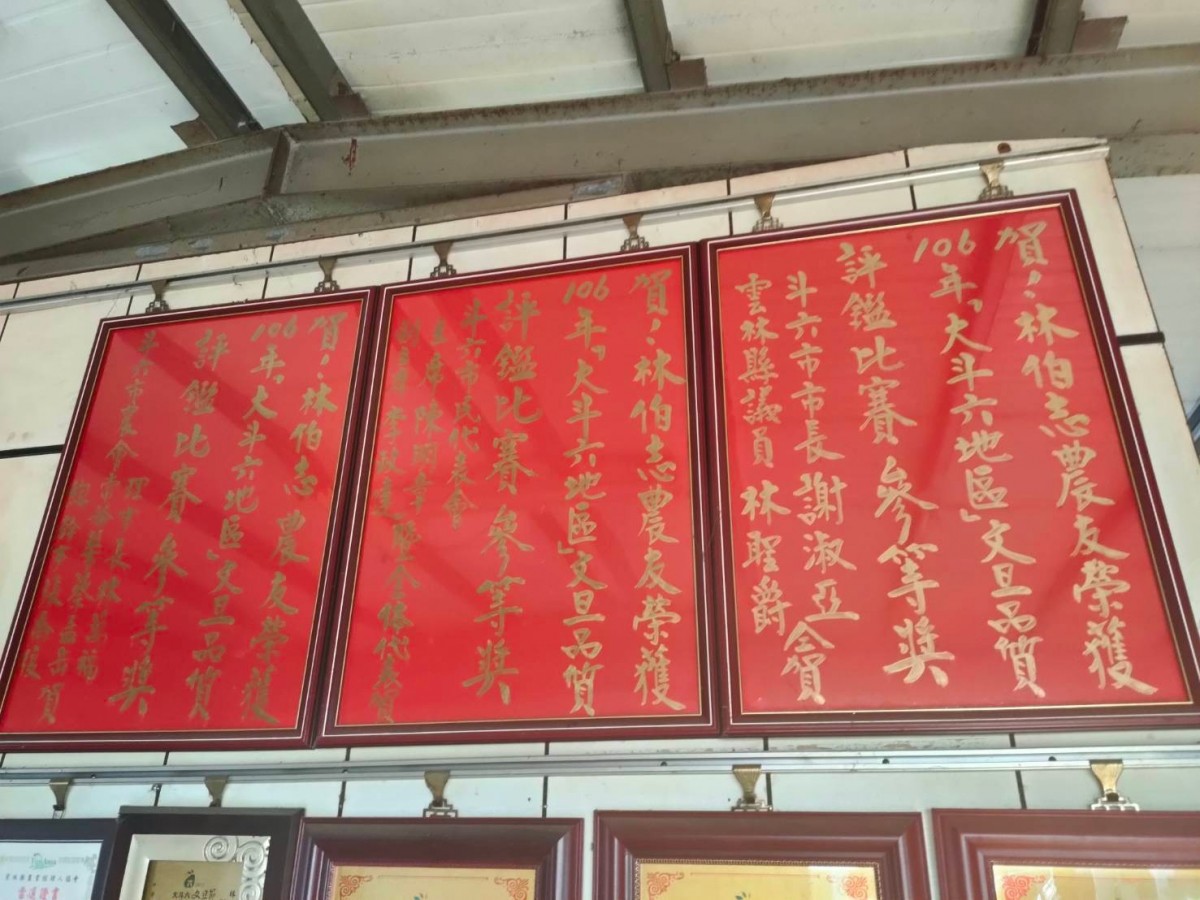 賀、林伯志農友榮獲
106年「大斗六地區」文旦品質
評鑑比賽 參等獎
斗六市市長 謝淑亞
雲林縣議員 林聖爵 仝賀
賀、林伯志農友榮獲
106年「大斗六地區」文旦品質
評鑑比賽 參等獎
斗六市民代表會
主席 陳明章
副主席 李政達 暨全体代表賀
賀、林伯志農友榮獲
106年「大斗六地區」文旦品質
評鑑比賽 參等獎
斗六市農會